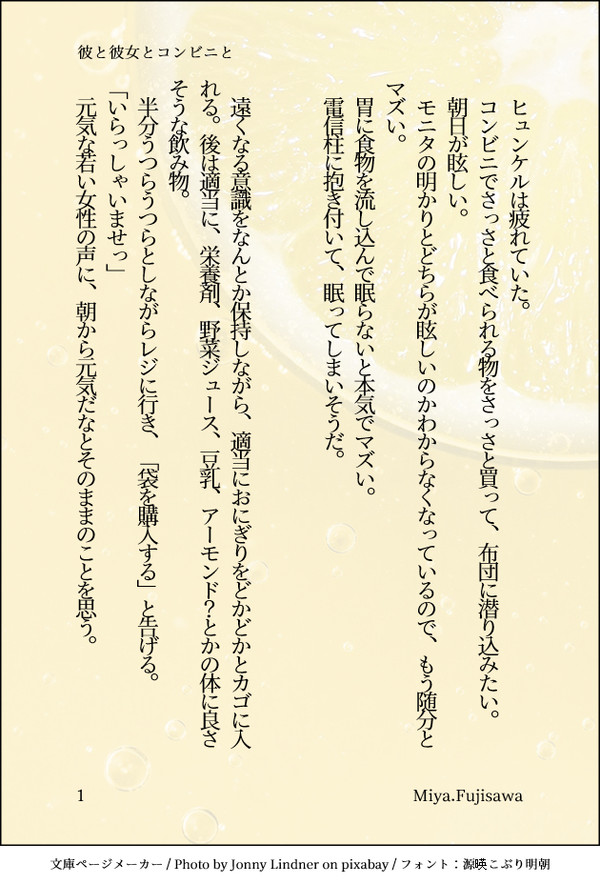 彼と彼女とコンビニと
ヒュンケルは疲れていた。
コンビニでさっさと食べられる物をさっさと買って、布団に潜り込みたい。
朝日が眩しい。
モニタの明かりとどちらが眩しいのかわからなくなっているので、もう随分と
マズい。
胃に食物を流し込んで眠らないと本気でマズい。
電信柱に抱き付いて、眠ってしまいそうだ。
遠くなる意識をなんとか保持しながら、適当におにぎりをどかどかとカゴに入
れる。後は適当に、栄養剤、野菜ジュース、豆乳、アーモンド?とかの体に良さ
そうな飲み物。
半分うつらうつらとしながらレジに行き、「袋を購入する」と告げる。
「いらっしゃいませっ」
元気な若い女性の声に、朝から元気だなとそのままのことを思う。
1
Miya.Fujisawa
文庫ページメーカー / Photo by Jonny Lindner on pixabay / フォント：源暎こぶり明朝